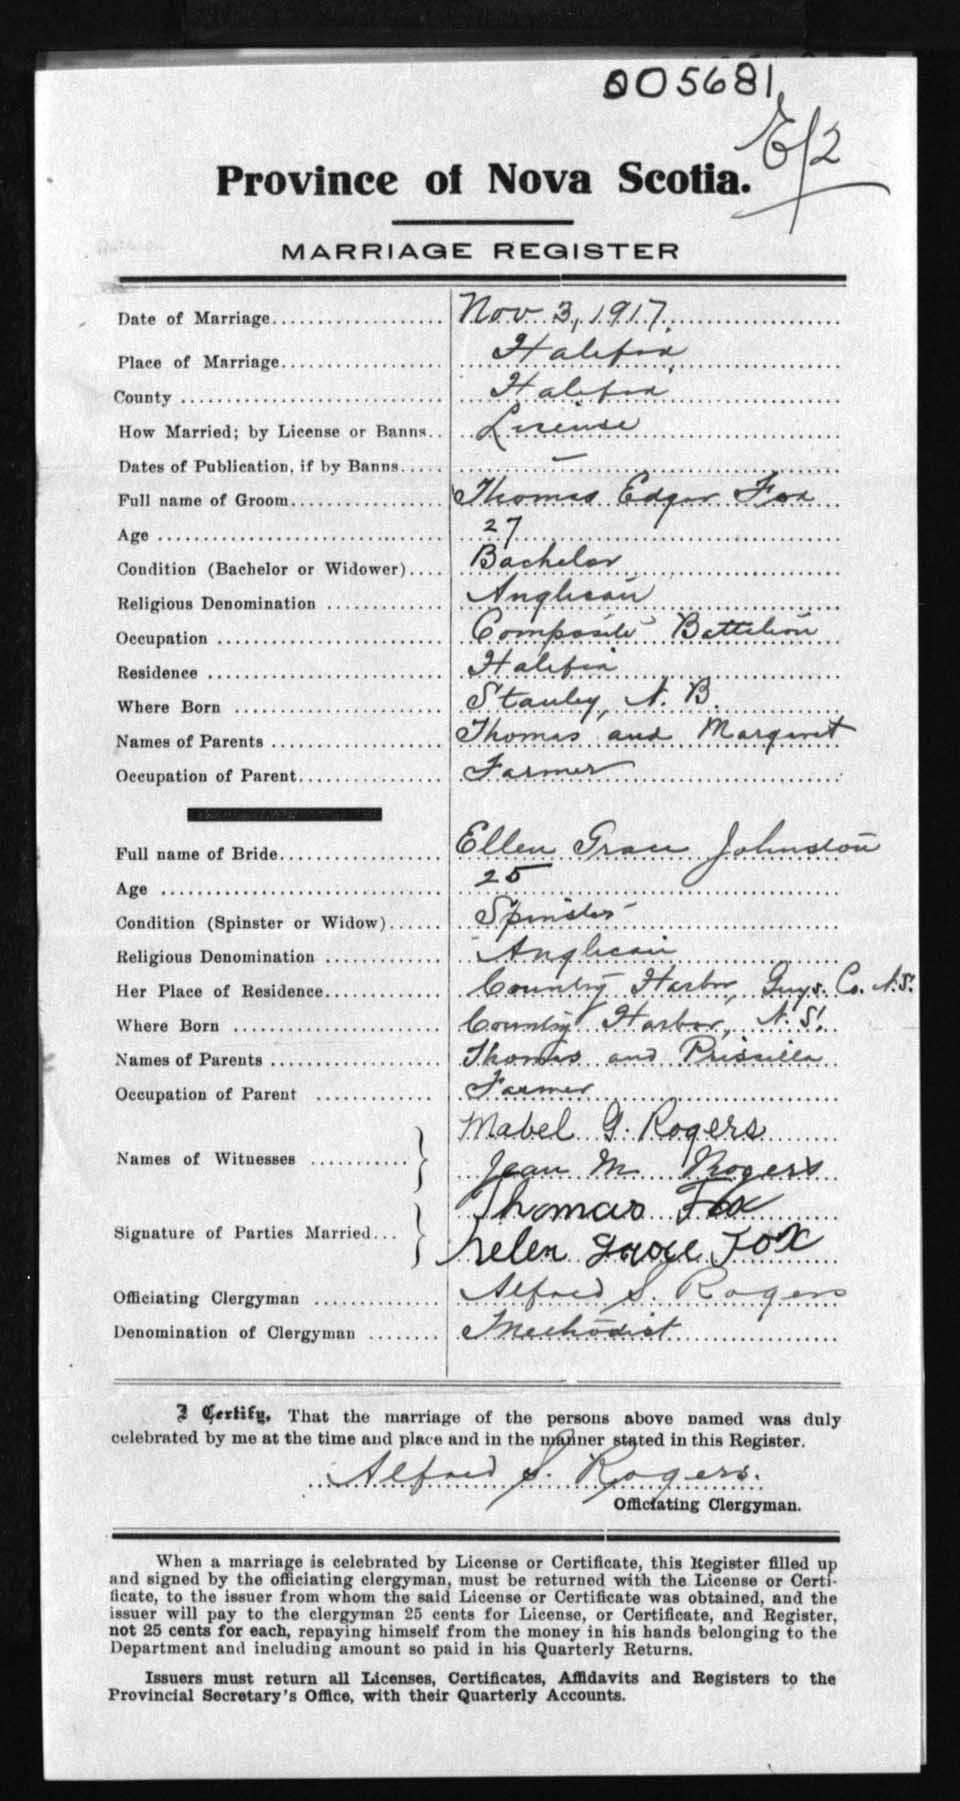 005681
E/2
Province of Nova Scotia.
MARRIAGE REGISTER
Date of Marriage Nov 3, 1917.
Place of Marriage Halifax
County Halifax
How Married; by License or Banns License
Dates of Publication, if by Banns —
Full name of Groom Thomas Edgar Fox
Age 27
Condition (Bachelor or Widower) Bachelor
Religious Denomination Anglican
Occupation Composite Battalion
Residence Halifax
Where Born Stanley, N. B.
Names of Parents Thomas and Margaret
Occupation of Parent Farmer
Full name of Bride Ellen Grace Johnston
Age 25
Condition (Spinster or Widow) Spinster
Religious Denomination Anglican
Her Place of Residence Country Harbor, Guys. Co. N.S.
Where Born Country Harbor, N. S.
Names of Parents Thomas and Priscilla
Occupation of Parent Farmer
Names of Witnesses Mabel G. Rogers
Jean M. Rogers
Signature of Parties Married Thomas Fox
helen grace Fox
Officiating Clergyman Alfred S. Rogers
Denomination of Clergyman Methodist
I Certify, That the marriage of the persons above named was duly
celebrated by me at the time and place and in the manner stated in this Register.
Alfred S. Rogers.
Officiating Clergyman.
When a marriage is celebrated by License or Certificate, this Register filled up
and signed by the officiating clergyman, must be returned with the License or Certi-
ficate, to the issuer from whom the said License or Certificate was obtained, and the
issuer will pay to the clergyman 25 cents for License, or Certificate, and Register,
not 25 cents for each, repaying himself from the money in his hands belonging to the
Department and including amount so paid in his Quarterly Returns.
Issuers must return all Licenses, Certificates, Affidavits and Registers to the
Provincial Secretary's Office, with their Quarterly Accounts.